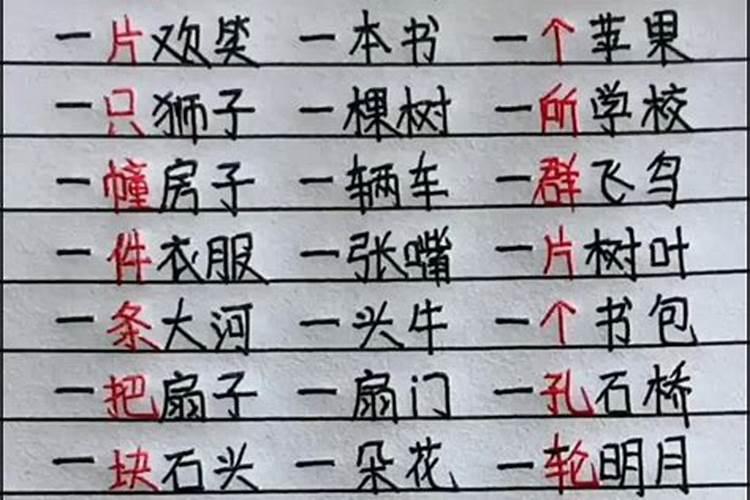 一片欢笑 一本书 一个苹果
一只狮子 一棵树 一所学校
一幢房子 一辆车 一群飞鸟
一件衣服 一张嘴 一片树叶
一条大河 一头牛 一个书包
一把扇子 一扇门 一孔石桥
一块石头 一朵花 一轮明月